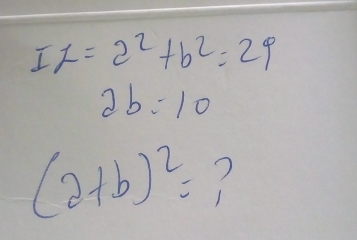 If = a² + b² = 29
ab = 10
(a+b)² = ?